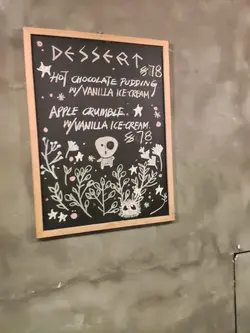 DESSERT
HOT CHOCOLATE PUDDING $78
W/VANILLA ICE-CREAM
APPLE CRUMBLE
W/VANILLA ICE-CREAM. $78